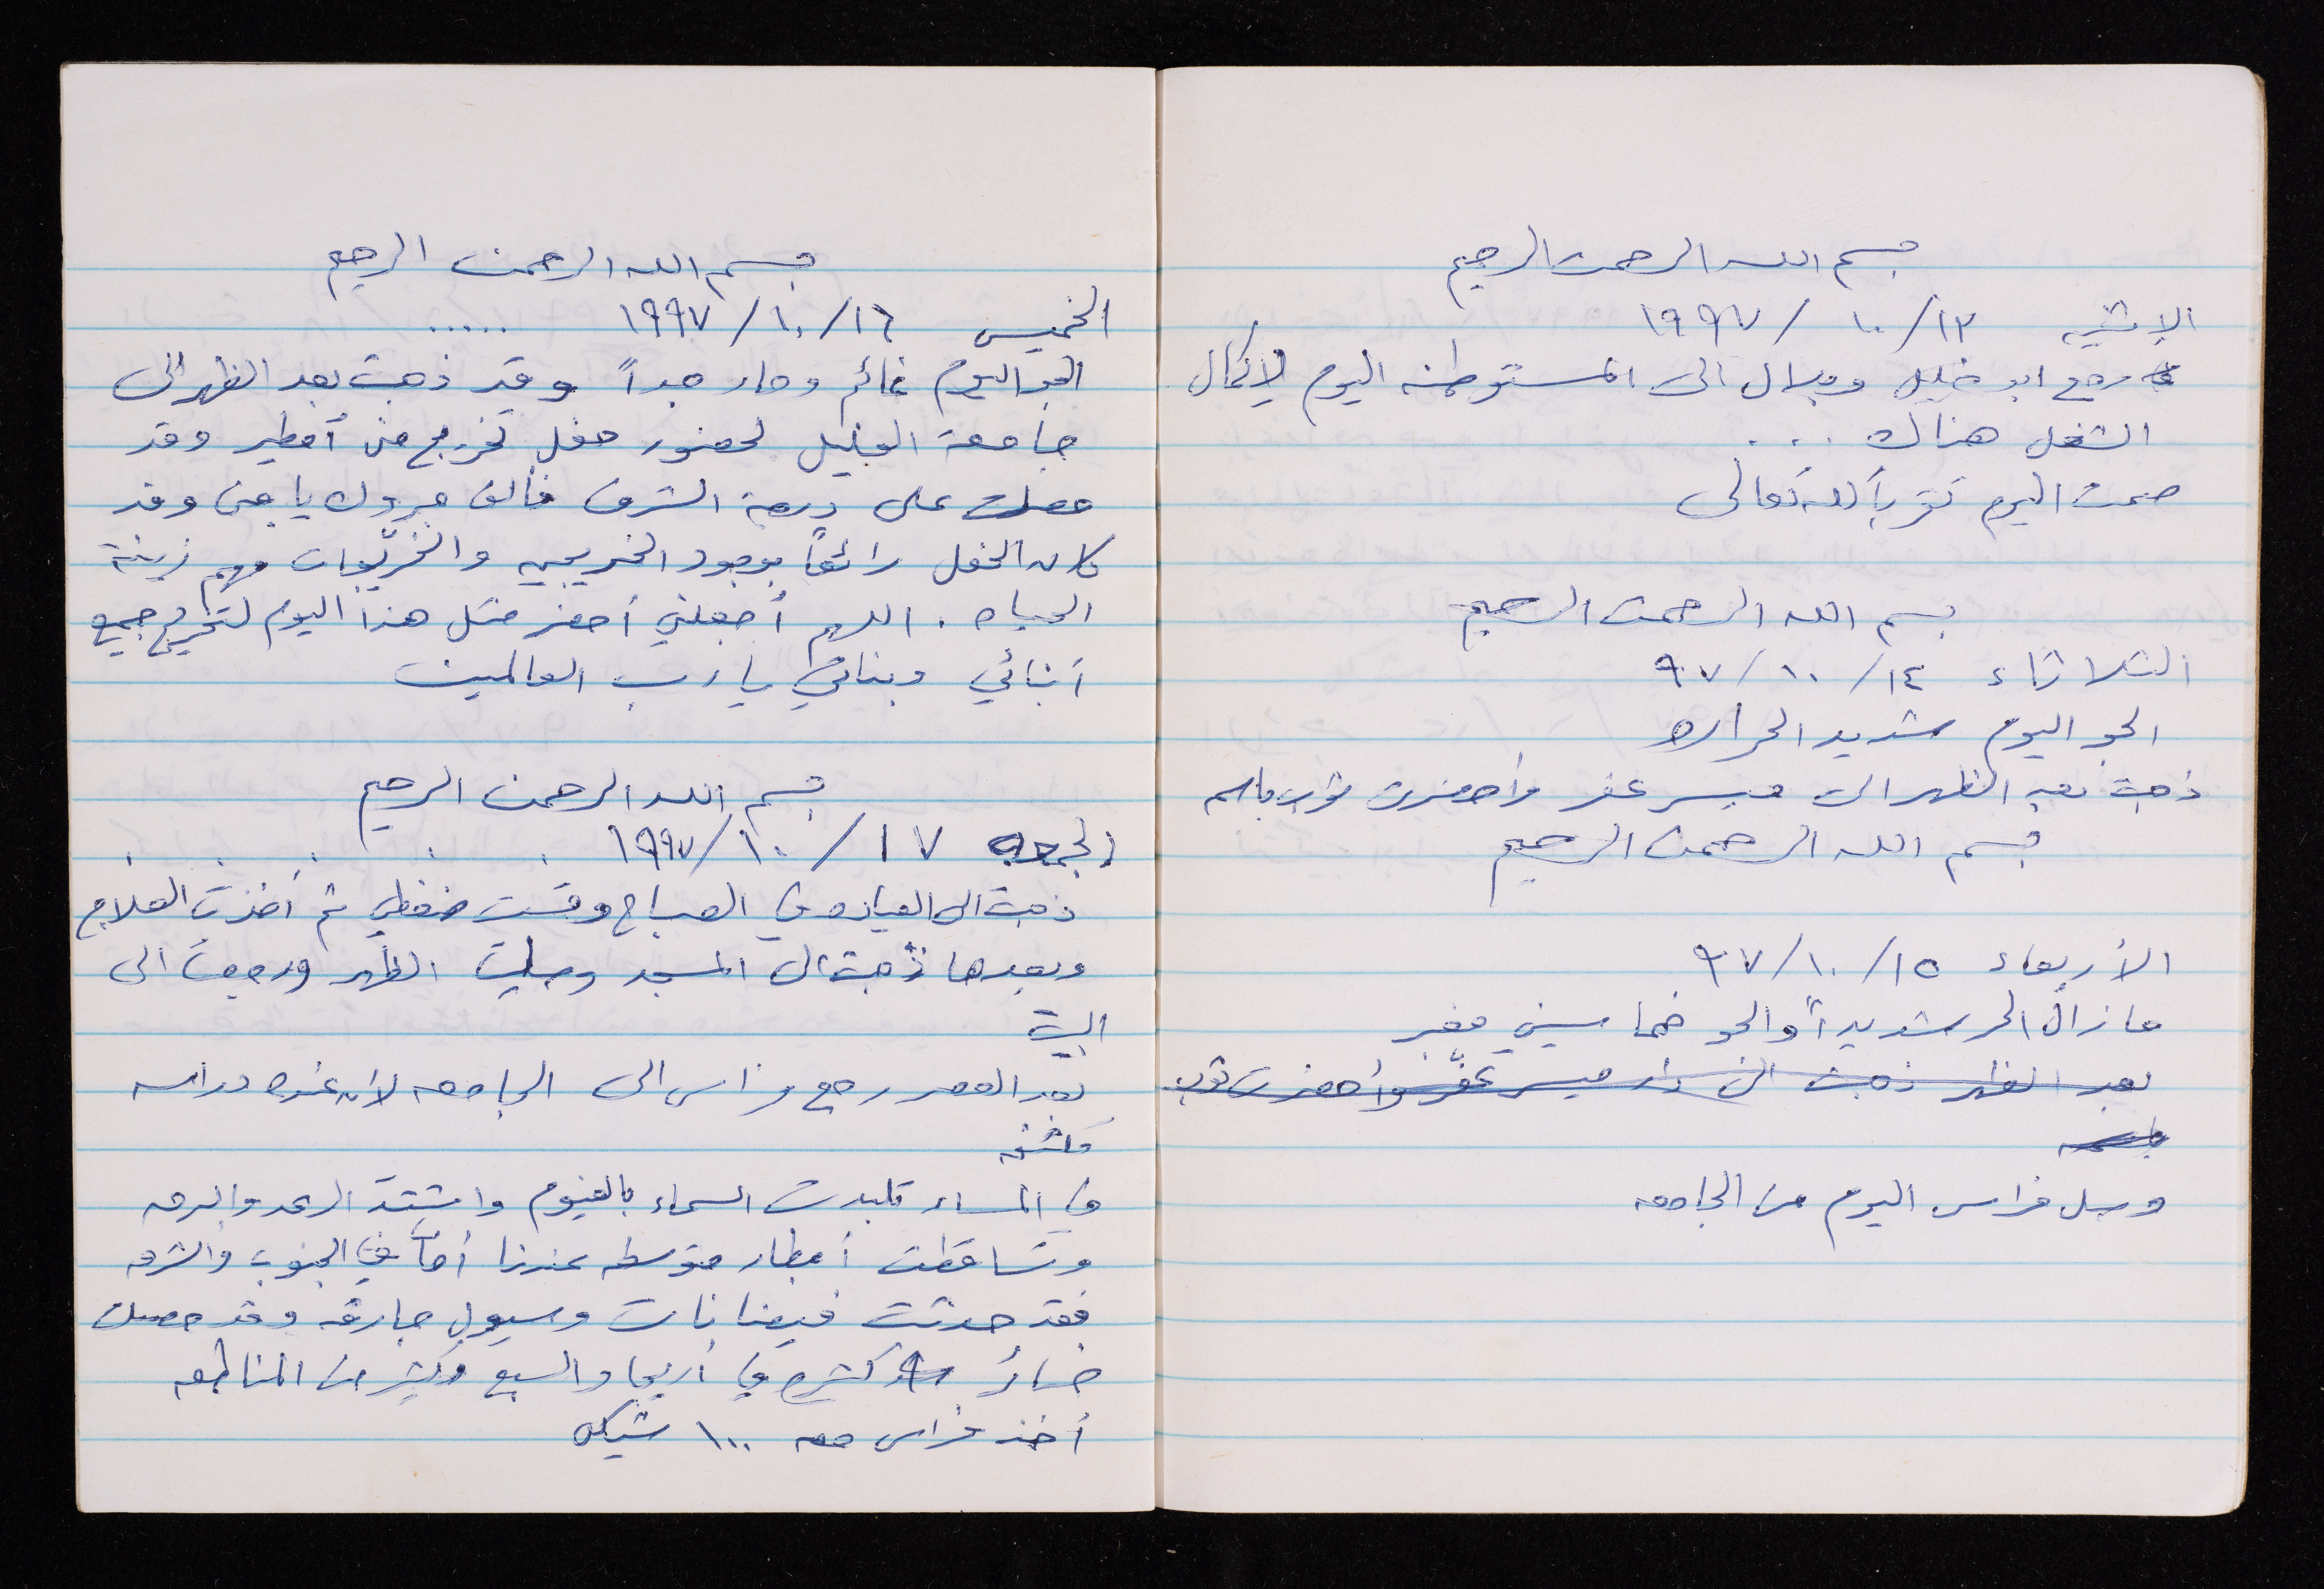 بسم الله الرحمن الرحيم
الاثنين ١٣/١٠/١٩٩٧
رجع ابو خليل وبلال الى المستوطنه اليوم لإكمال
الشغل هناك ...
صمت اليوم تقرباً لله تعالى
بسم الله الرحمن الرحيم
الثلاثاء ١٤/١٠/٩٧
الجو اليوم شديد الحراره
ذهبت بعد الظهر الى ميسر عفر وأحضرت ثوب باسم
بسم الله الرحمن الرحيم
الأربعاء ١٥/١٠/٩٧
ما زال الحر شديداً والجو خماسيني مغبر
بعد الظهر ذهبت الى دار ميسر عفر وأحضرت ثوب
باسمه
وصل فراس اليوم من الجامعه
بسم الله الرحمن الرحيم
الخميس ١٦/١٠/١٩٩٧ .....
الجو اليوم غائم وحار جداً وقد ذهبت بعد الظهر الى
جامعة الخليل لحضور حفل تخرج وقد
حصلت على درجة الشرف فألف مبروك يا وقد
كان الحفل رائعاً بوجود الخريجين والخريجات فهم زينة
الحياه . اللهم أجعلني أحضر مثل هذا اليوم لتخريج جميع
أبنائي وبناتي يا رب العالمين
بسم الله الرحمن الرحيم
الجمعه ١٧/١٠/١٩٩٧ . . . . .
ذهبت الى العياده في الصباح وقست ضغطي ثم أخذت العلاج
وبعدها ذهبت الى المسجد وصليت الظهر ورجعت الى
البيت
بعد العصر رجع فراس الى الجامعه لأن عنده دراسه
مكثفه
في المساء تلبدت السماء بالغيوم واشتد الرعد والبرق
وتساقطت أمطار متوسطه عندنا أما في الجنوب والشرق
فقد حدثت فيضانات وسيول جارفه وقد حصلت
خسائر كثيره في أريحا والسبع وكثير من المناطق
أخذ فراس معه ١٠٠ شيكل